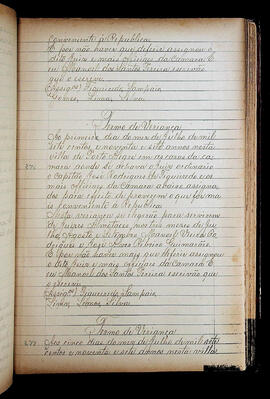 conveniente à Republica
E por não haver que deferir assignou o
dito Juiz e mais officiaes da Camara E
eu Manoel dos Santos Pereira escrivão
que o escrevi
Figueiredo Sampaio
Lemos, Lima, Silva
Termo de Veriança
Ao primeiro dia do mez de Julho de mil
sete centos e noventa e sete annos nesta
villa de Porto Alegre em as casas da ca-
mara aonde se achavam o Juiz ordinario
o Capitão José Rodrigues de Figueiredo e os
mais officiaes da Camara abaixo assigna-
dos para effeito de proverem o que for ma-
is conveniente à Republica
Nesta veriança se elegerão para servirem
de Juizes Almotaces nos tres mezes de Ju-
lho Agosto e Setembro Manoel
e José Ribeiro Guimarães
E por não haver mais que deferir assignou
o dito Juiz e mais officiaes da Camara E
eu Manoel dos Santos Pereira escrivão que
o escrevi
Figueiredo, Sampaio
Lima, Lemos, Silva
Termo de Veriança
Aos cinco dias do mez de Julho de mil sete
centos e noventa e sete annos nesta villa